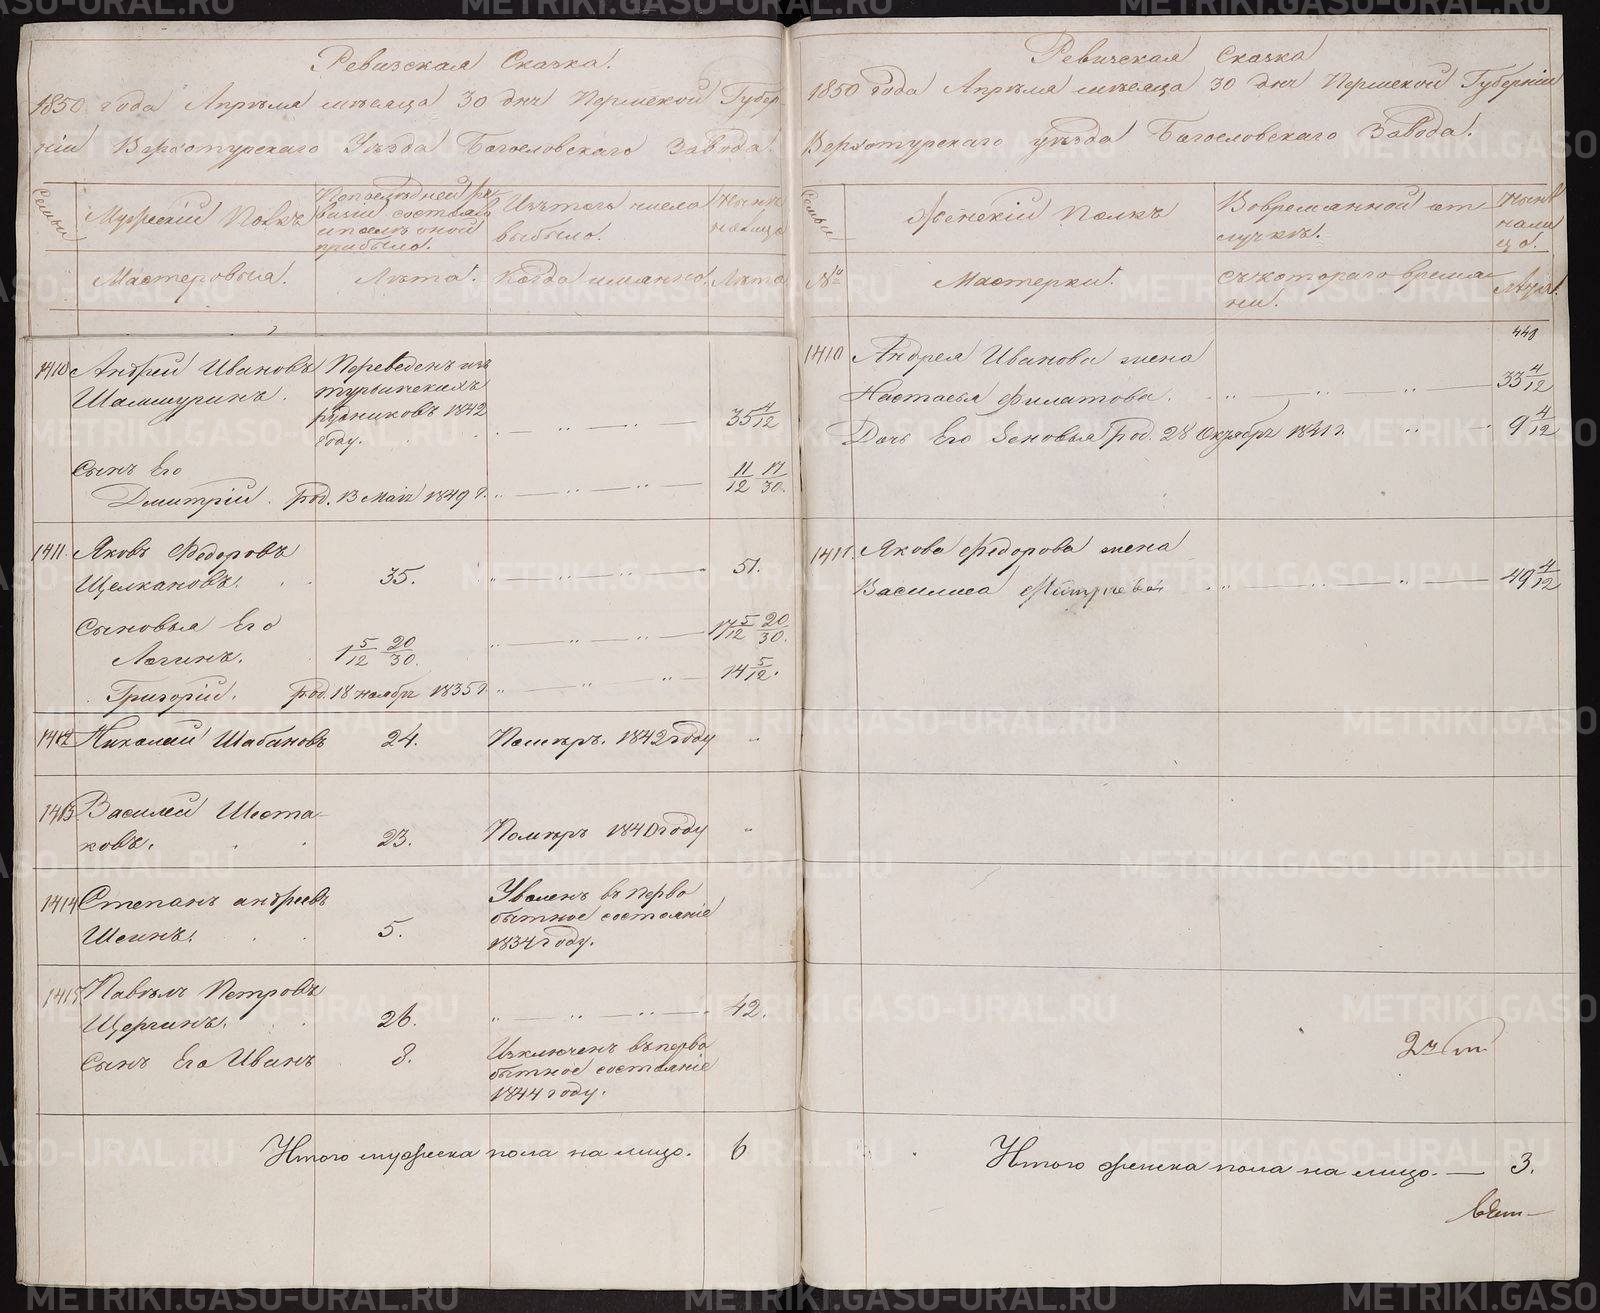 Ревизская Сказка.
1850 года Апреля месяца 30 дня Пермской Губер-
ніи Верхотурскаго Уезда Богословскаго Завода.
Семьи
Мужескій Полъ
По последней ре-
визіи состояло
и после оной
прибыло.
Изъ того числа
выбыло.
Ныне
на лицо
Мастеровыя.
Лета.
Когда именно.
Лета
1410
Андрей Ивановъ
Шамшуринъ.
Переведенъ изъ
турьинскихъ
рудниковъ 1842
году.
35 4/12
Сынъ Его
Дмитрій. род. 13 Мая 1849 г.
11/12 17/30.
1411
Яковъ Федоровъ
Щелкановъ. 35. 51.
Сыновья Его
Логинъ. 1 5/12 20/30. 17 5/12 20/30.
Григорій. род. 18 ноября 1835 г. 14 5/12.
1412 Николай Шабановъ 24. Померъ. 1842 году "
1413 Василей Шеста-
ковъ. 23. Померъ 1840 году "
1414 Степанъ андреевъ
Шеинъ. 5.
Уволенъ въ перво
бытное состояніе
1834 году.
1415 Павелъ Петровъ
Щергинъ. 26. 42.
Сынъ Его Иванъ 8.
Изключенъ въ перво
бытное состояніе
1844 году.
Итого мужеска пола на лицо. 6
Ревизская Сказка
1850 года Апреля месяца 30 дня Пермской Губерніи
Верхотурскаго уезда Богословскаго Завода.
Семьи
Женскій Полъ
Во временной от
лучке.
Ныне
на ли
цо.
№
Мастерки.
Съ котораго време-
ни.
Лета.
440
1410 Андрея Иванова жена
Настасья Филатова. 33 4/12
Дочь Его Зеновья род. 28 Октября 1841 г. 9 4/12
1411 Якова Федорова жена
Василиса 49 4/12
Итого женска пола на лицо. — 3.
METRIKI.GASO-URAL.RU